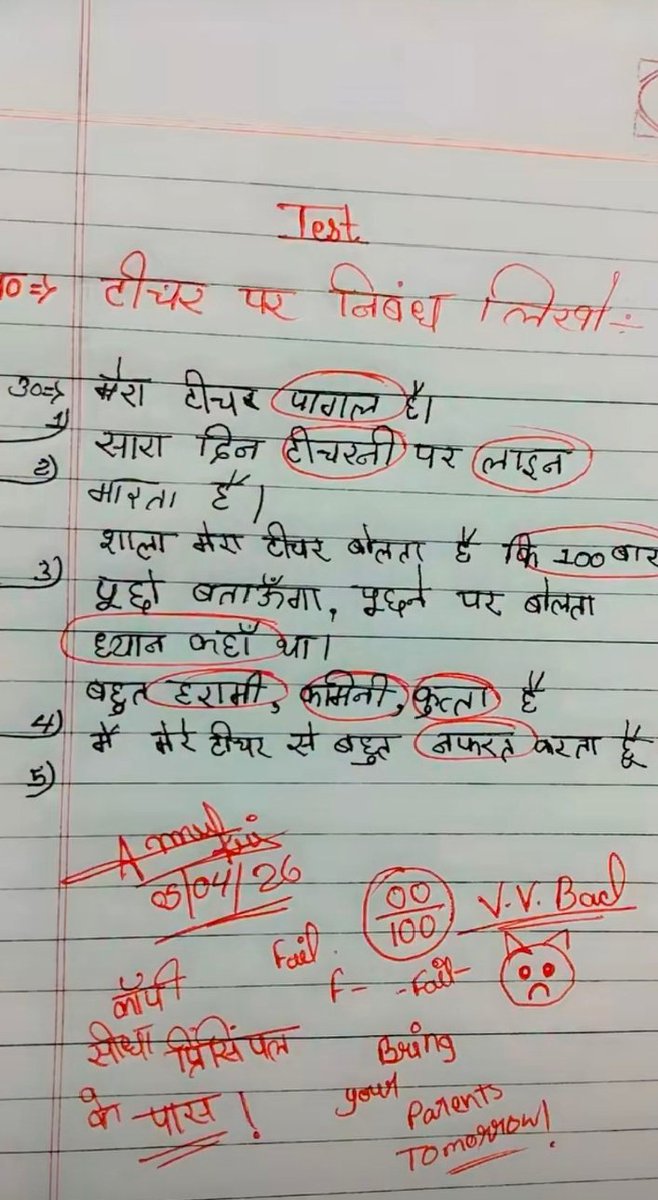 Test
प्र0⇒ टीचर पर निबंध लिखो:-
उ0⇒ मेरा टीचर पागल है।
1)
सारा दिन टीचरनी पर लाइन
2)
मारता है।
शाला मेरा टीचर बोलता है कि 100 बार
3)
पूछो बताऊँगा, पूछने पर बोलता
ध्यान कहाँ था।
बहुत हरामी, कमिनी, कुत्ता है
4)
मैं मेरे टीचर से बहुत नफरत करता हूँ
5)
05/04/26
00/100 V.V. Bad
Fail.
F- -Fail-
कॉपी
सीधा प्रिंसिपल
के पास!
Bring
your
Parents
Tomorrow!